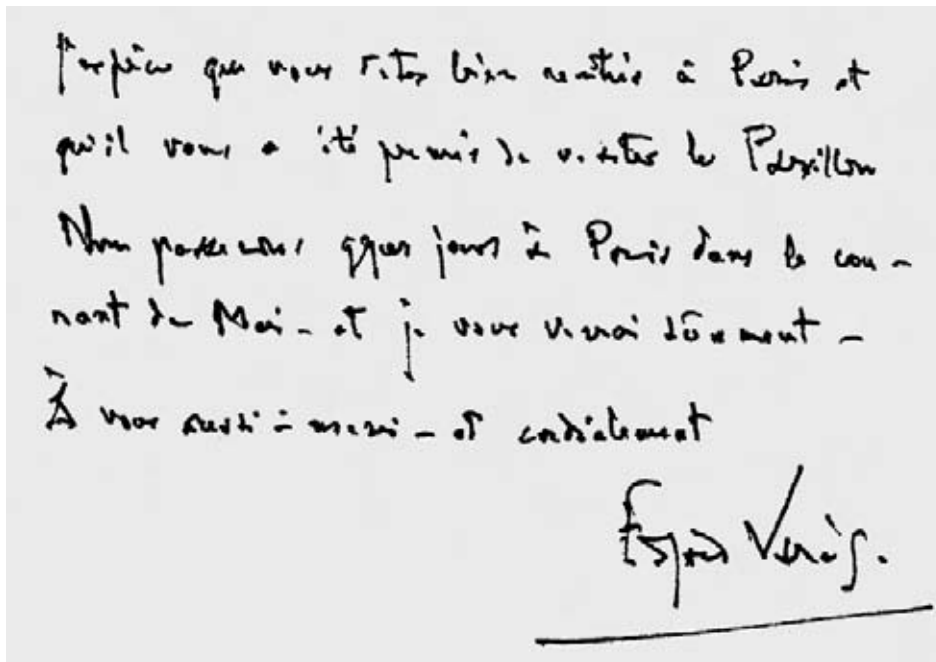 J'espère que vous êtes bien rentrée à Paris et
qu'il vous a été permis de visiter le Pavillon
Nous passerons qques jours à Paris dans le cou-
rant de Mai - et je vous verrai sûrement -
À vous aussi - merci - et cordialement
Edgard Varèse.